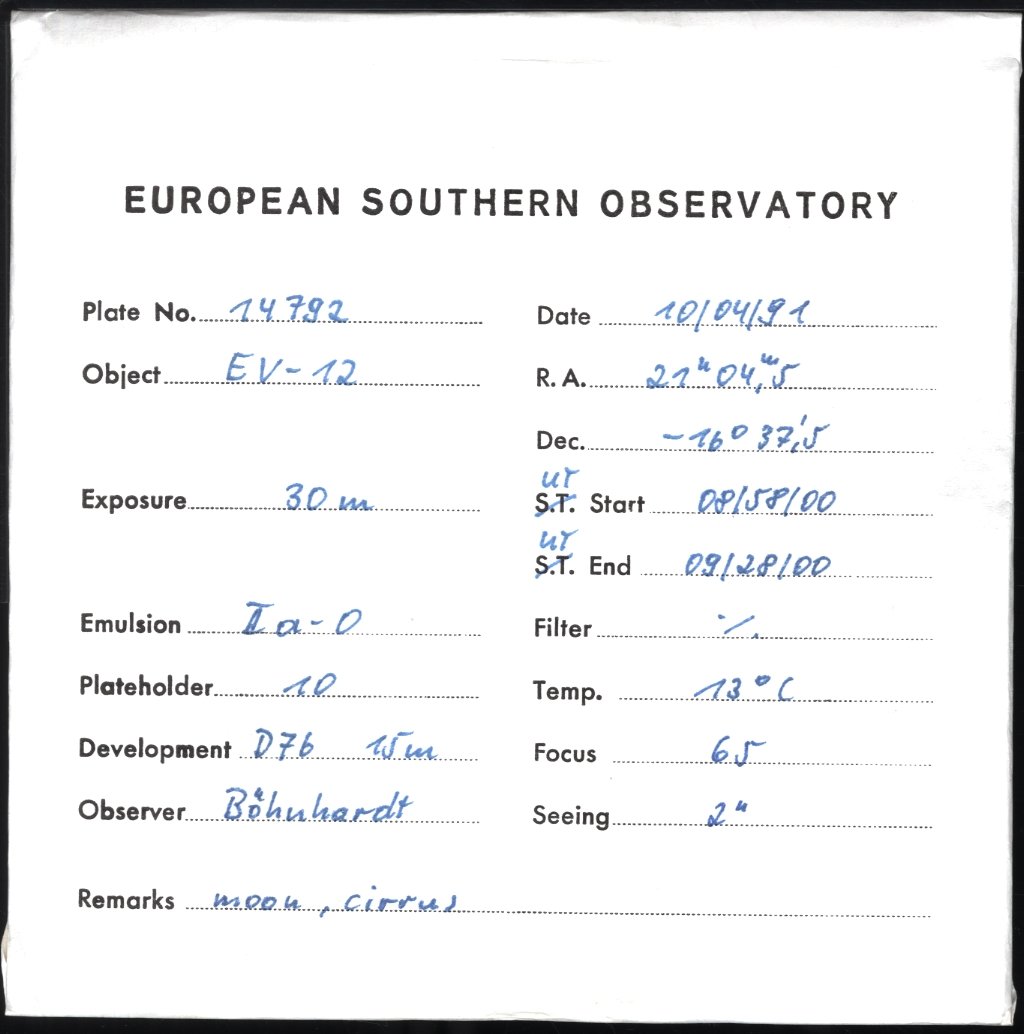 EUROPEAN SOUTHERN OBSERVATORY
Plate No. 14792 Date 10/04/91
Object EV-12 R. A. 21h 04,m5
Dec. -16° 37,'5
UT
Exposure 30 m S.T. Start 08/58/00
UT
S.T. End 09/28/00
Emulsion IIa-O Filter ·/.
Plateholder 10 Temp. 13°C
Development D76 15m Focus 65
Observer Böhnhardt Seeing 2"
Remarks moon, cirrus